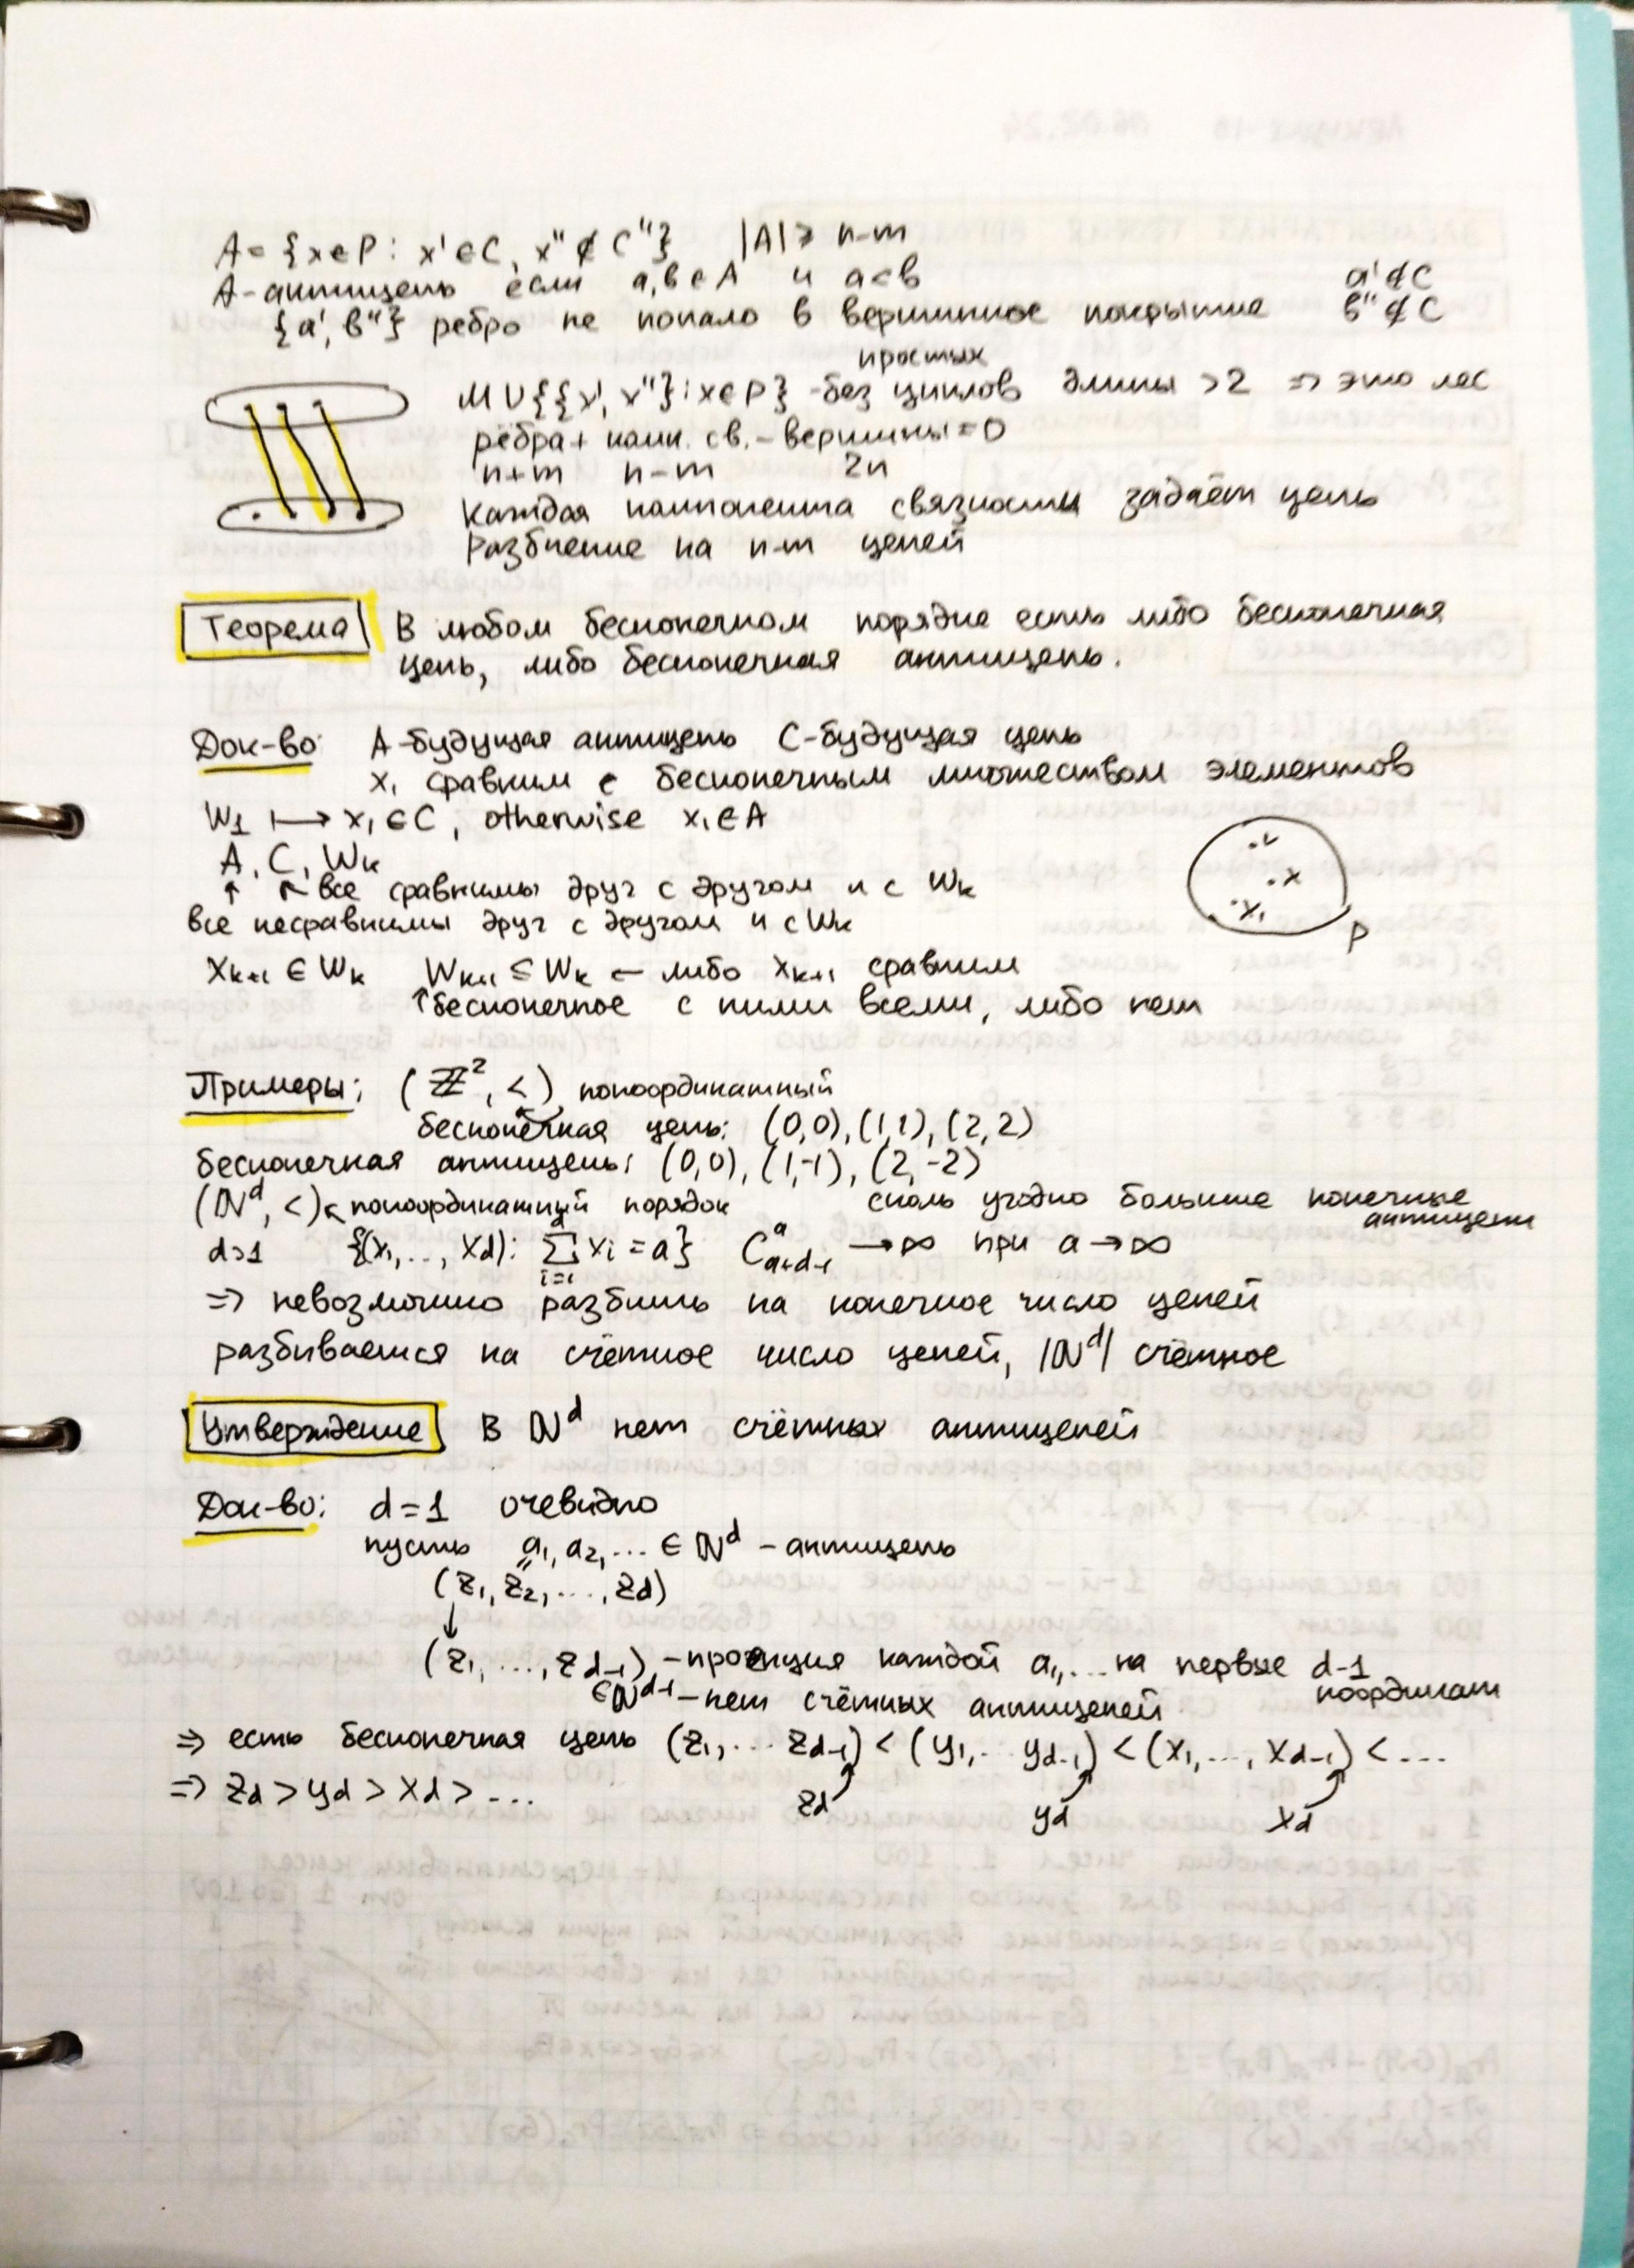 A = {x∈P: x'∈C, x''∉C''} |A| ≥ n-m
A-антицепь если a,b∈A и a<b a'∉C
{a', b''} ребро не попало в вершинное покрытие b''∉C
простых
M∪{{x', x''}: x∈P} - без циклов длины >2 ⇒ это лес
рёбра + комп. св. - вершины = 0
n+m n-m 2n
Каждая компонента связности задаёт цепь
Разбиение на n-m цепей
Теорема В любом бесконечном порядке есть либо бесконечная
цепь, либо бесконечная антицепь.
Док-во: A-будущая антицепь C-будущая цепь
x₁ сравним с бесконечным множеством элементов
W₁ ↦ x₁∈C, otherwise x₁∈A
A, C, Wₖ
↑ ↖ все сравнимы друг с другом и с Wₖ
все несравнимы друг с другом и с Wₖ
x
x₁
P
xₖ₊₁ ∈ Wₖ Wₖ₊₁ ⊆ Wₖ ← либо xₖ₊₁ сравним
↑бесконечное с ними всеми, либо нет
Примеры: (ℤ², <) покоординатный
бесконечная цепь: (0,0), (1,1), (2,2)
бесконечная антицепь: (0,0), (1,-1), (2,-2)
(ℕᵈ, <) ↖ покоординатный порядок сколь угодно большие конечные
антицепи
d>1 {(x₁, ..., x_d): ∑_{i=1}^{d} xᵢ = a} C_{a+d-1}^{a} → ∞ при a→∞
⇒ невозможно разбить на конечное число цепей
разбивается на счётное число цепей, |ℕᵈ| счётное
Утверждение В ℕᵈ нет счётных антицепей
Док-во: d=1 очевидно
пусть a₁, a₂, ... ∈ ℕᵈ - антицепь
(z₁, z₂, ..., z_d)
↓
(z₁, ..., z_{d-1}) - проекция каждой a₁, ... на первые d-1
координат
∈ℕ^{d-1} - нет счётных антицепей
⇒ есть бесконечная цепь (z₁, ... z_{d-1}) < (y₁, ... y_{d-1}) < (x₁, ..., x_{d-1}) < ...
⇒ z_d > y_d > x_d > ... z_d y_d x_d